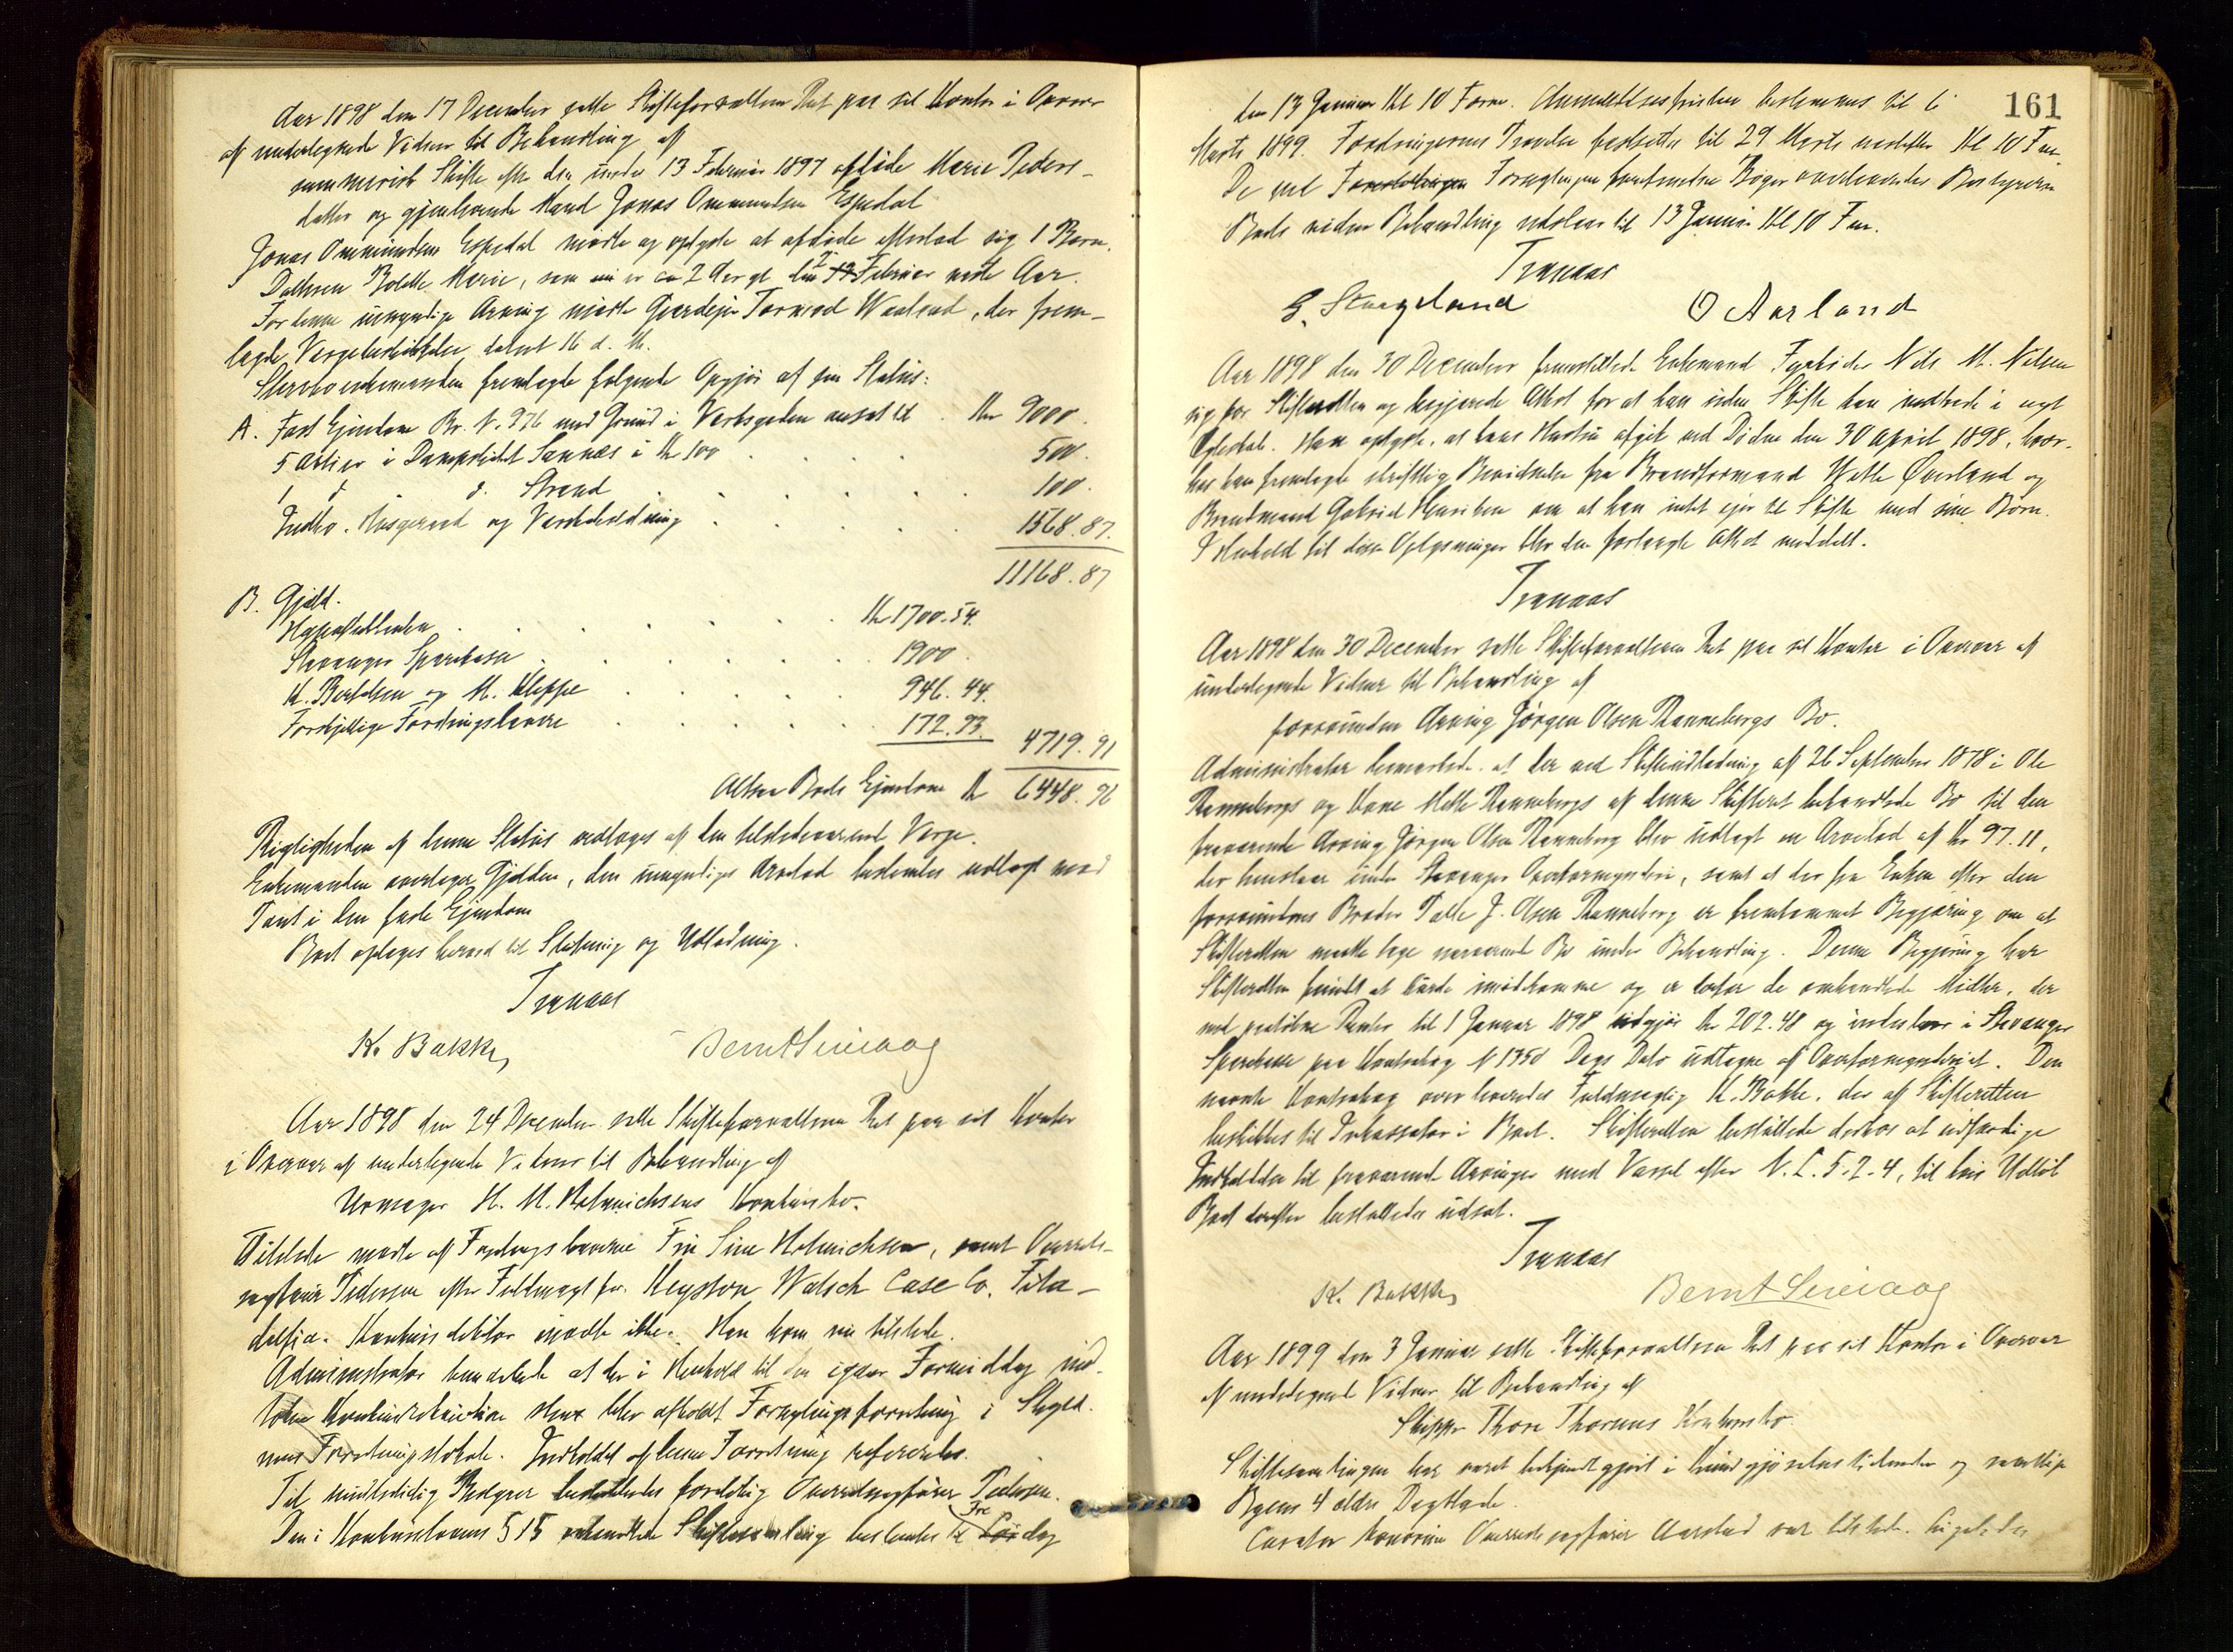 Aar 1898 den 17 December satte Skifteforvalteren Ret paa sit Kontor i Overvær
af undertegnede Vidner til Behandling af
summarisk Skifte efter den under 13 Februar 1897 afdøde Marie Peders-
datter og gjenlevende Mand Jonas Ommundsen Espedal
Jonas Ommundsen Espedal mødte og oplyste at afdøde efterlod sig 1 Barn,
Datteren Bolette Marie, som er ca 2 Aar gl. Februar næste Aar.
For denne umyndige Arving mødte Gaardejer Tormod Waaland, der frem-
lagde Værgebeskikkelse datert 16 d. M.
Stervboenkemanden fremlagde følgende Opgjør af sin Status:
A. Fast Ejendom Br. N. 976 med Grund i Verksgaden ansat til . Kr 9000.
5 Aktier i Dampskibet Sannæs à Kr 100 . . . . 500.
1 d. d. Strand . . . . . 100.
Indbo. Husgeraad og Varebeholdning . . . . 1568.87.
11168.87
B. Gjæld.
Hypothekbanken . . . . . . Kr 1700.54.
Stavanger Sparekasse . . . . . 1900.
K. Bertelsen og M. Kleppe . . . . 946.44.
Forskjellige Fordringshavere . . . . 172.93. 4719.91
Altsaa Boets Ejendom Kr 6448.96
Rigtigheden af denne Status vedtoges af den tilstedeværende Værge.
Enkemanden overtager Gjælden, den umyndiges Arvelod besluttes udlagt med
Pant i den faste Ejendom
Boet optages herved til Slutning og Udlodning.
Tranaas
K. Bakke, Bernt Seviaag
Aar 1898 den 24 December satte Skifteforvalteren Ret paa sit Kontor
i Overvær af undertegnede Vidner til Behandling af
Urmager H. M. Helmichsens Konkursbo.
Tilstede mødte af Fordringshaverne Frk Sine Helmichsen, samt Overrets-
sagfører Pedersen efter Fuldmagt fra Keyston Watsch Case Co. Fila-
delfia. Konkursdebitor mødte ikke. Han kom nu tilstede.
Administrator bemærkede at der i Henhold til den igaar Formiddag ind-
komne Konkursbegjæring strax blev afholdt Forseglingsforretning i Skyld-
nerens Forretningslokale. Indholdet af denne Forretning refereredes.
Til midlertidig Bestyrer beskikkedes foreløbig Overretssagfører Pedersen.
Den i Konkurslovens § 15 omhandlede Skiftesamling besluttes til Fre dag
161
den 13 Januar Kl 10 Form. Anmeldelsesfristen bestemmes til 6
Marts 1899. Fordringernes Prøvelse fastsættes til 29 Marts næstefter Kl 10 Fm.
De ved Forseglingen forefundne Bøger overleveredes Bestyreren
Boets videre Behandling udsættes til 13 Januar Kl 10 Fm.
Tranaas
G. Skageland O Aarland
Aar 1898 den 30 December fremstillede Enkemand Fyrbøder Nils M. Nilsen
sig for Skifteretten og begjærede Attest for at han uden Skifte kan indtræde i nyt
Ægteskab. Han oplyste, at hans Hustru afgik ved Døden den 30 April 1898, hvor-
hos han fremlagde skriftlig Bevidnelse fra Brandformand Øverland og
Brandmand Gabriel Henriksen om at han intet ejer til Skifte med sine Børn.
I Henhold til disse Oplysninger blev den forlangte Attest meddelt.
Tranaas
Aar 1898 den 30 December satte Skifteforvalteren Ret paa sit Kontor i Overvær af
undertegnede Vidner til Behandling af
forsvunden Arving Jørgen Olsen Rannebergs Bo.
Administrator bemærkede at der ved Skifteudlodning af 26 September 1878 i Ole
Rannebergs og Kone Mette Rannebergs af denne Skifteret behandlede Bo til den
fraværende Arving Jørgen Olsen Ranneberg blev udlagt en Arvelod af Kr 97.11,
der henstaar under Stavanger Overformynderi, samt at der fra Enken efter den
forsvundnes Broder Talle J. Olsen Ranneberg er fremkommet Begjæring om at
Skifteretten maatte tage nærværende Bo under Behandling. Denne Begjæring har
Skifteretten fundet at burde imødekomme og er derfor de omhandlede Midler, der
med paaløbne Renter til 1 Januar 1898 udgjør Kr 202.48 og indestaar i Stavanger
Sparekasse paa Kontrabog N 1350 Dags Dato udtagne af Overformynderiet. Den
nævnte Kontrabog overleveredes Fuldmægtig K. Bakke, der af Skifteretten
beskikkes til Inkassator i Boet. Skifteretten besluttede derhos at udfærdige
Indkaldelse til fraværende Arvinger med Varsel efter N. L. 5-2-4, til hvis Udløb
Boet derefter besluttedes udsat.
Tranaas
K. Bakke, Bernt Seviaag
Aar 1899 den 3 Januar satte Skifteforvalteren Ret paa sit Kontor i Overvær
af undertegnede Vidner til Behandling af
Skipper Thore Thorsens Konkursbo.
Skiftesamlingen har været bekjendtgjort i Kundgjørelsestidenden og samtlige
Byens 4 ældre Dagblade.
Curator bonorum Overretssagfører Aarstad var tilstede. Ligeledes